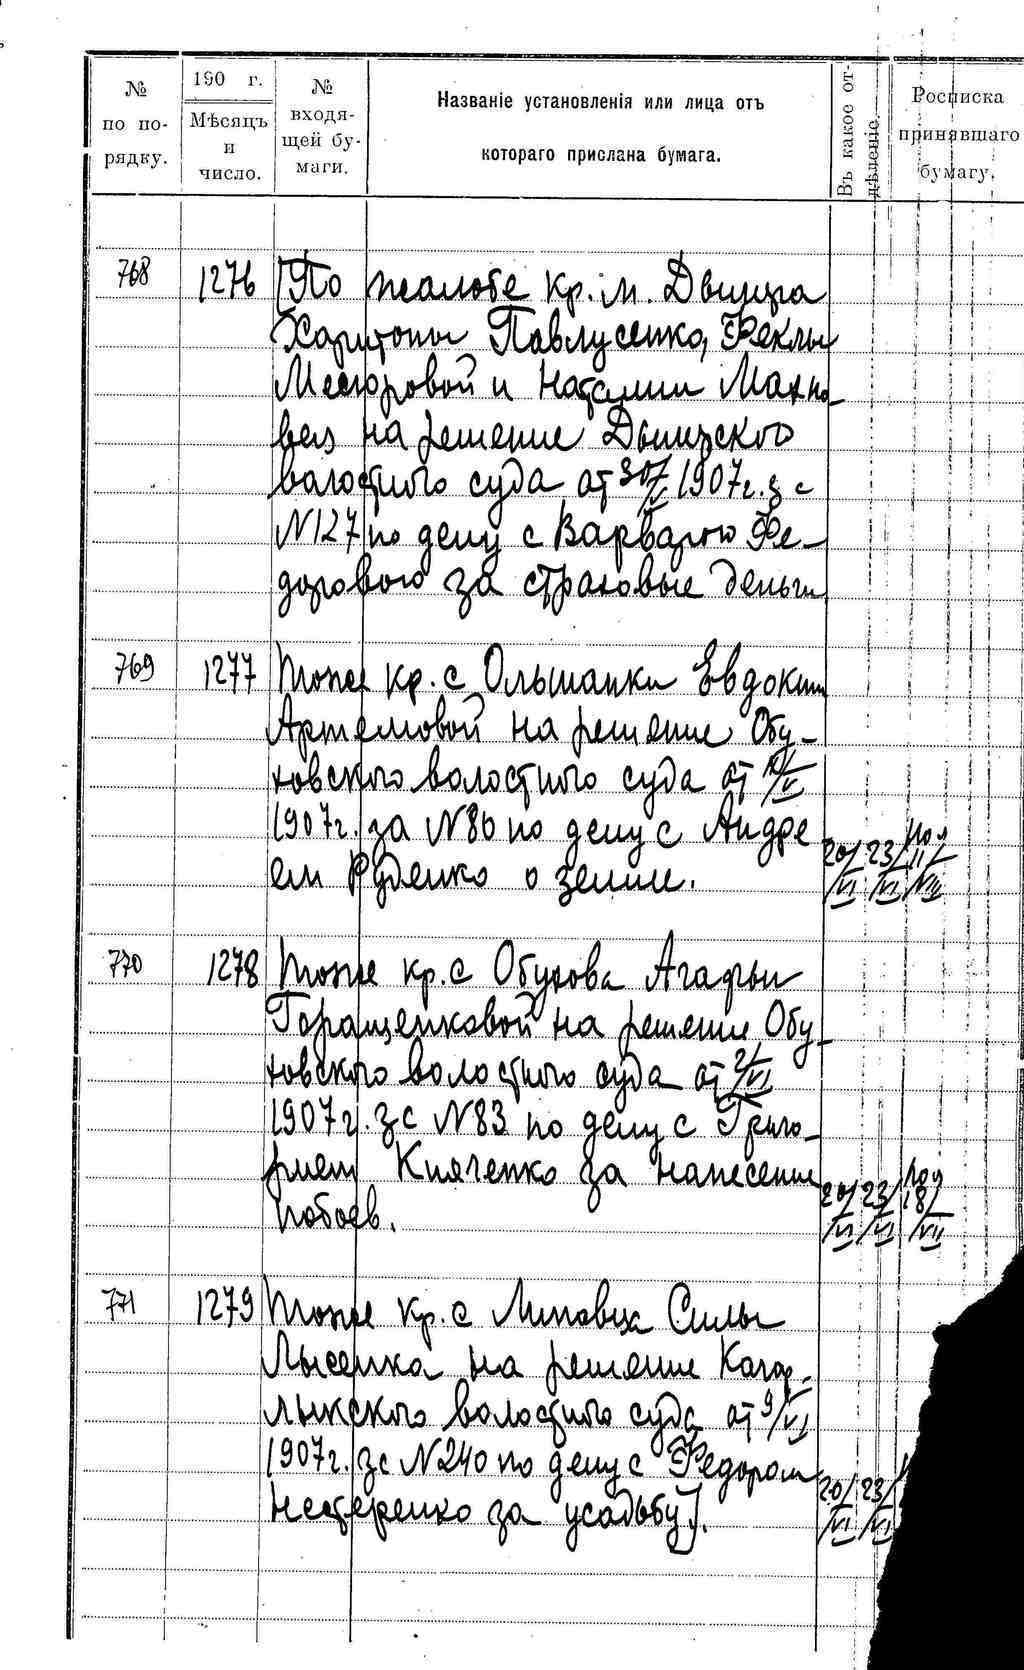 № по порядку.
190 г. Мѣсяцъ и число.
№ входящей бумаги.
Названіе установленія или лица отъ
котораго прислана бумага.
Въ какое отдѣленіе.
Росписка принявшаго бумагу.
768 1276 [По жалобе кр. м. Дымера
Харитоны Павлусенко, Феклы
и Наталии Махно-
вец на решение Дымерского
волостного суда от 30/V 1907г. за
N127 по делу с Варварою Фе-
доровою за страховые деньги
769 1277 Тоже кр. с Ольшанки Евдокии
Артемовой на решение Обу-
ховского волостного суда от
1907г. за N86 по делу с Андре
ем Руденко о земле.
20/VI 23/VI 11/VIII
770 1278 Тоже кр. с Обухова Агафьи
Геращенковой на решение Обу-
ховского волостного суда от 2/VI
1907г. за N83 по делу с Григо-
рием Княченко за нанесение
побоев.
20/VI 23/VI 18/VII
771 1279 Тоже кр. с Липовца Силы
Лысенка на решение Кагар-
лыкского волостного суда от 9/VI
1907г. за N240 по делу с Федором
Нестеренко за усадьбу].
20/VI 23/VI